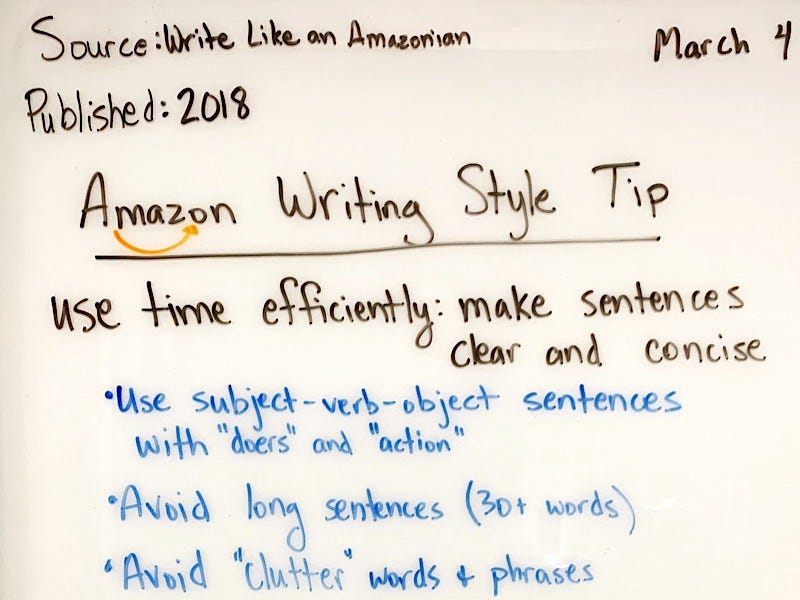 Source: Write Like an Amazonian
March 4
Published: 2018
Amazon Writing Style Tip
use time efficiently: make sentences
clear and concise
•Use subject-verb-object sentences
with "doers" and "action"
•Avoid long sentences (30+ words)
•Avoid "clutter" words + phrases